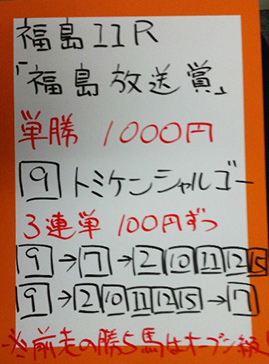 福島11R
「福島放送賞」
単勝 1000円
9 トミケンシャルゴー
3連単 100円ずつ
9→7→2 10 11 12 15
9→2 10 11 12 15→7
※前走の勝ち馬はオープン級